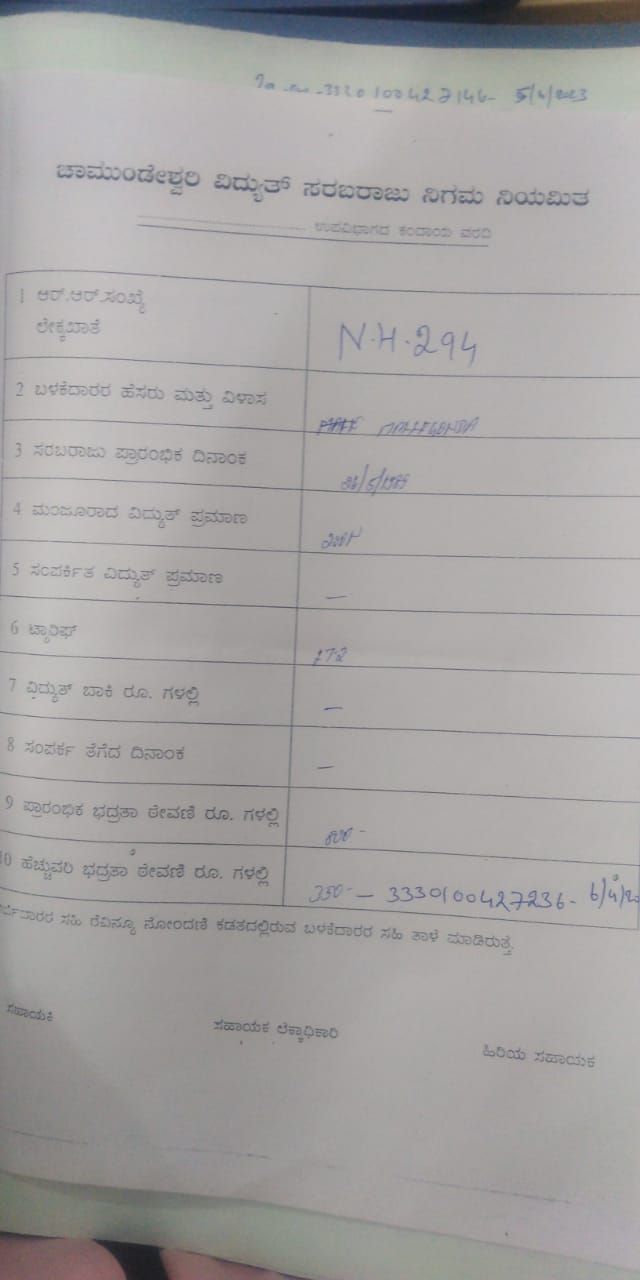 3330100427146- 5/4/2023
ಚಾಮುಂಡೇಶ್ವರಿ ವಿದ್ಯುತ್ ಸರಬರಾಜು ನಿಗಮ ನಿಯಮಿತ
ಉಪವಿಭಾಗದ ಕಂದಾಯ ವರದಿ
1 ಆರ್.ಆರ್.ಸಂಖ್ಯೆ
ಲೆಕ್ಕಖಾತೆ
N.H.294
2 ಬಳಕೆದಾರರ ಹೆಸರು ಮತ್ತು ವಿಳಾಸ
MALLEGOWDA
3 ಸರಬರಾಜು ಪ್ರಾರಂಭಿಕ ದಿನಾಂಕ
26/5/1985
4 ಮಂಜೂರಾದ ವಿದ್ಯುತ್ ಪ್ರಮಾಣ
5 ಸಂಪರ್ಕಿತ ವಿದ್ಯುತ್ ಪ್ರಮಾಣ
—
6 ಟ್ಯಾರಿಫ್
7 ವಿದ್ಯುತ್ ಬಾಕಿ ರೂ. ಗಳಲ್ಲಿ
—
8 ಸಂಪರ್ಕ ತೆಗೆದ ದಿನಾಂಕ
—
9 ಪ್ರಾರಂಭಿಕ ಭದ್ರತಾ ಠೇವಣಿ ರೂ. ಗಳಲ್ಲಿ
10 ಹೆಚ್ಚುವರಿ ಭದ್ರತಾ ಠೇವಣಿ ರೂ. ಗಳಲ್ಲಿ
350- — 3330100427236- 6/4/20
ಸಹಿ ರೆವಿನ್ಯೂ ನೋಂದಣಿ ಕಡತದಲ್ಲಿರುವ ಬಳಕೆದಾರರ ಸಹಿ ತಾಳೆ ಮಾಡಿರುತ್ತೆ.
ಸಹಾಯಕಿ
ಸಹಾಯಕ ಲೆಕ್ಕಾಧಿಕಾರಿ
ಹಿರಿಯ ಸಹಾಯಕ